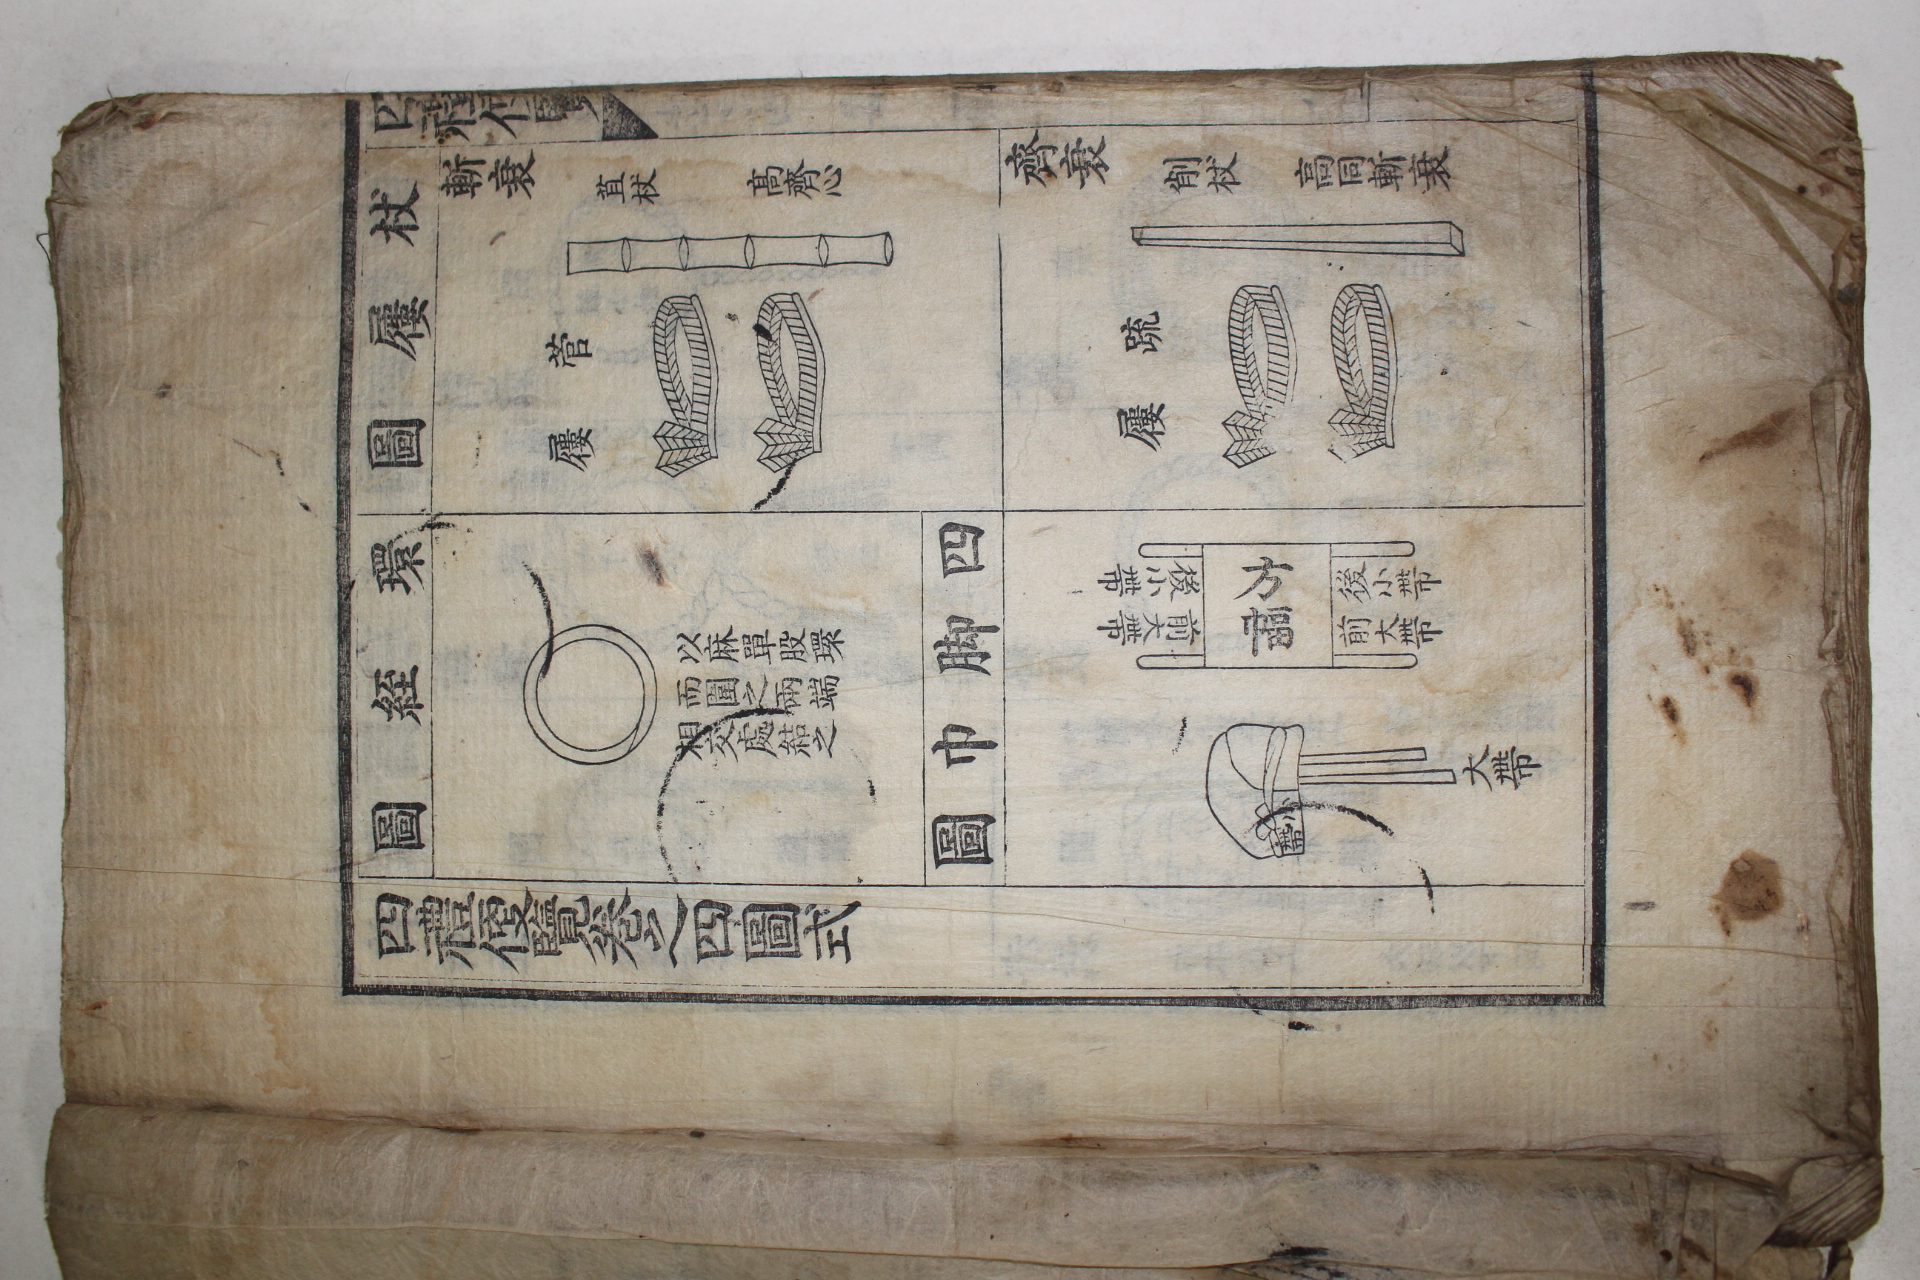 四禮便覽
杖屨圖
斬衰
苴杖
高齊心
菅屨
齊衰
削杖
高同斬衰
疏屨
環絰圖
以麻單股環
而圍之兩端
相交處結之
四脚巾圖
方幅
後小帶
前大帶
後小帶
前大帶
大帶
小帶
四禮便覽卷之四圖式